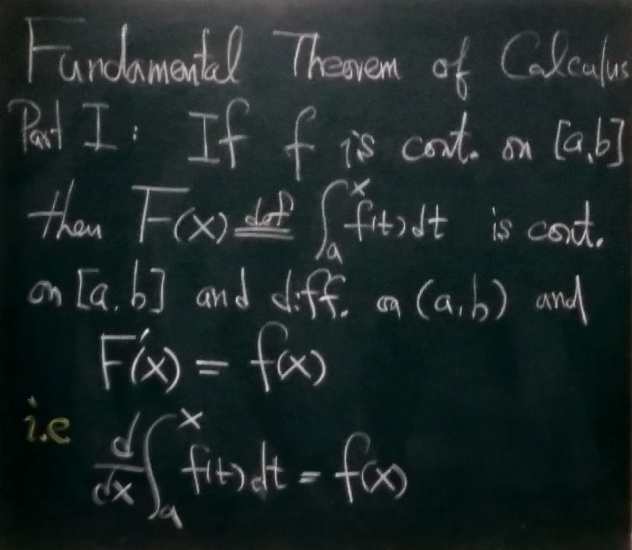 Fundamental Theorem of Calculus
Part I: If f is cont. on [a,b]
then F(x) def= ∫ₐˣ f(t)dt is cont.
on [a,b] and diff. on (a,b) and
F'(x) = f(x)
i.e d/dx ∫ₐˣ f(t)dt = f(x)